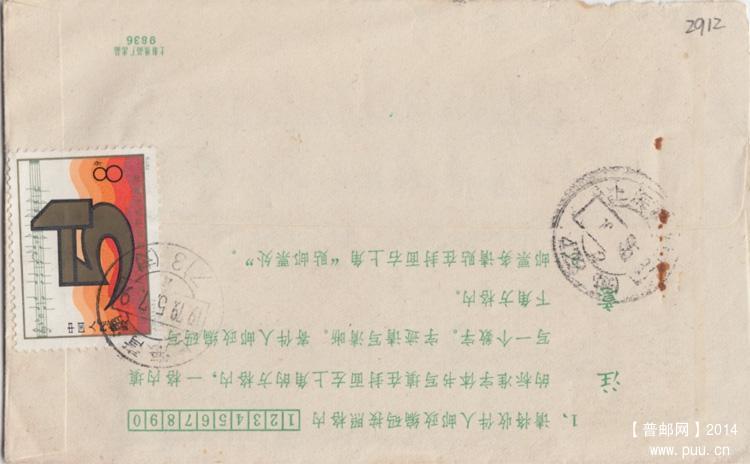 2912
9836
8分
上海
注意
1、请将收件人邮政编码按照格内 1234567890
的标准字体书写填在封面左上角的方格内，一格内填
写一个数字。字迹请写清晰。寄件人邮政编码写
下角方格内。
邮票务请贴在封面右上角“贴邮票处”。
【普邮网】2014
www.puu.cn